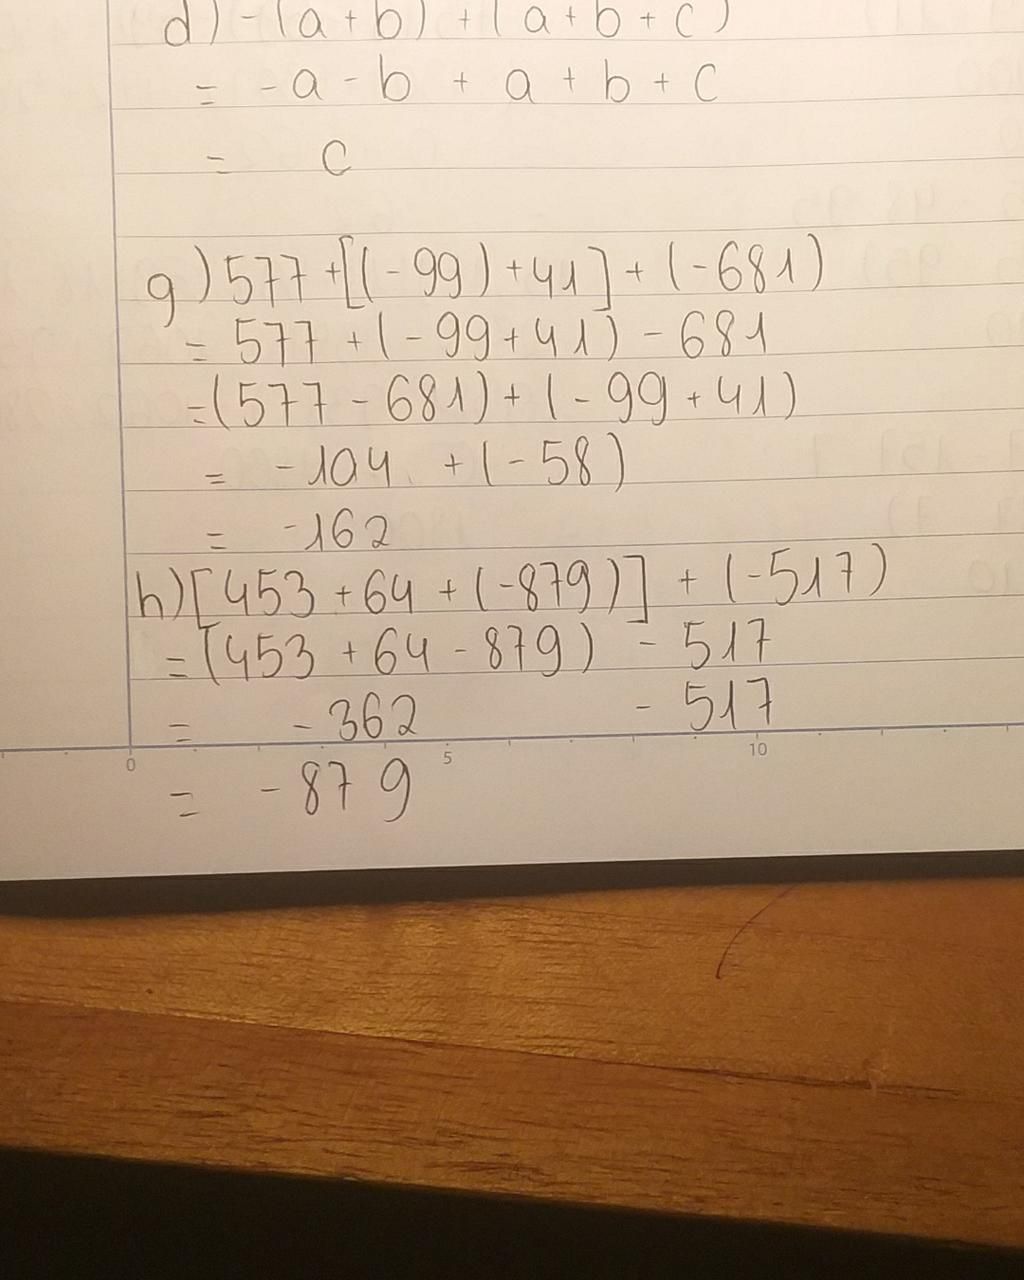 d) -(a+b) + (a+b+c)
= -a - b + a + b + c
= c
g) 577 + [(-99) + 41] + (-681)
= 577 + (-99 + 41) - 681
= (577 - 681) + (-99 + 41)
= -104 + (-58)
= -162
h) [453 + 64 + (-879)] + (-517)
= (453 + 64 - 879) - 517
= -362 - 517
0 5 10
= -879